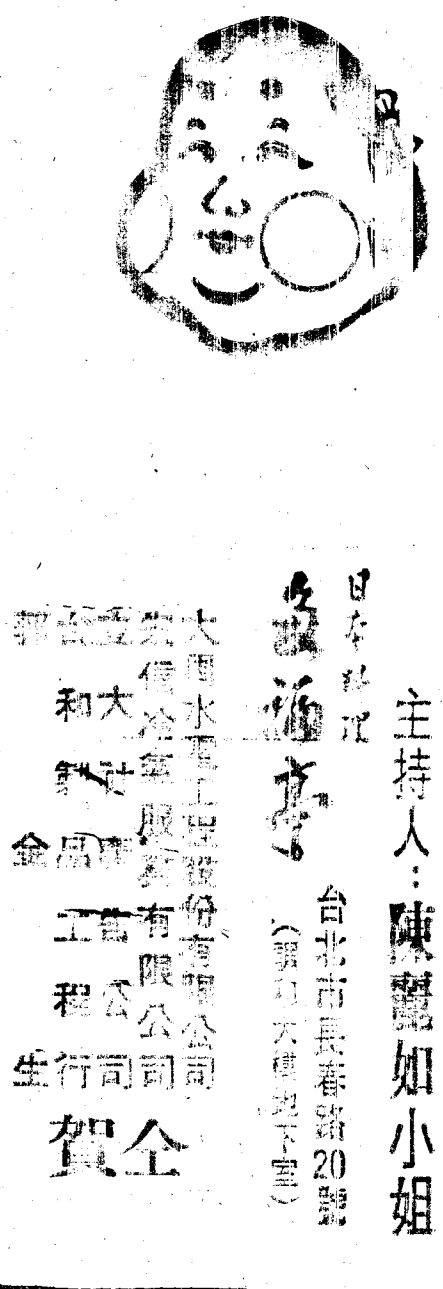 主持人：陳麗如小姐
日本料理
福亭
台北市長春路20號
大樓地下室）
大同水電工程股份有限公司
信冷氣服務有限公司
大社 公司
和製品工程行
郭金生
仝賀